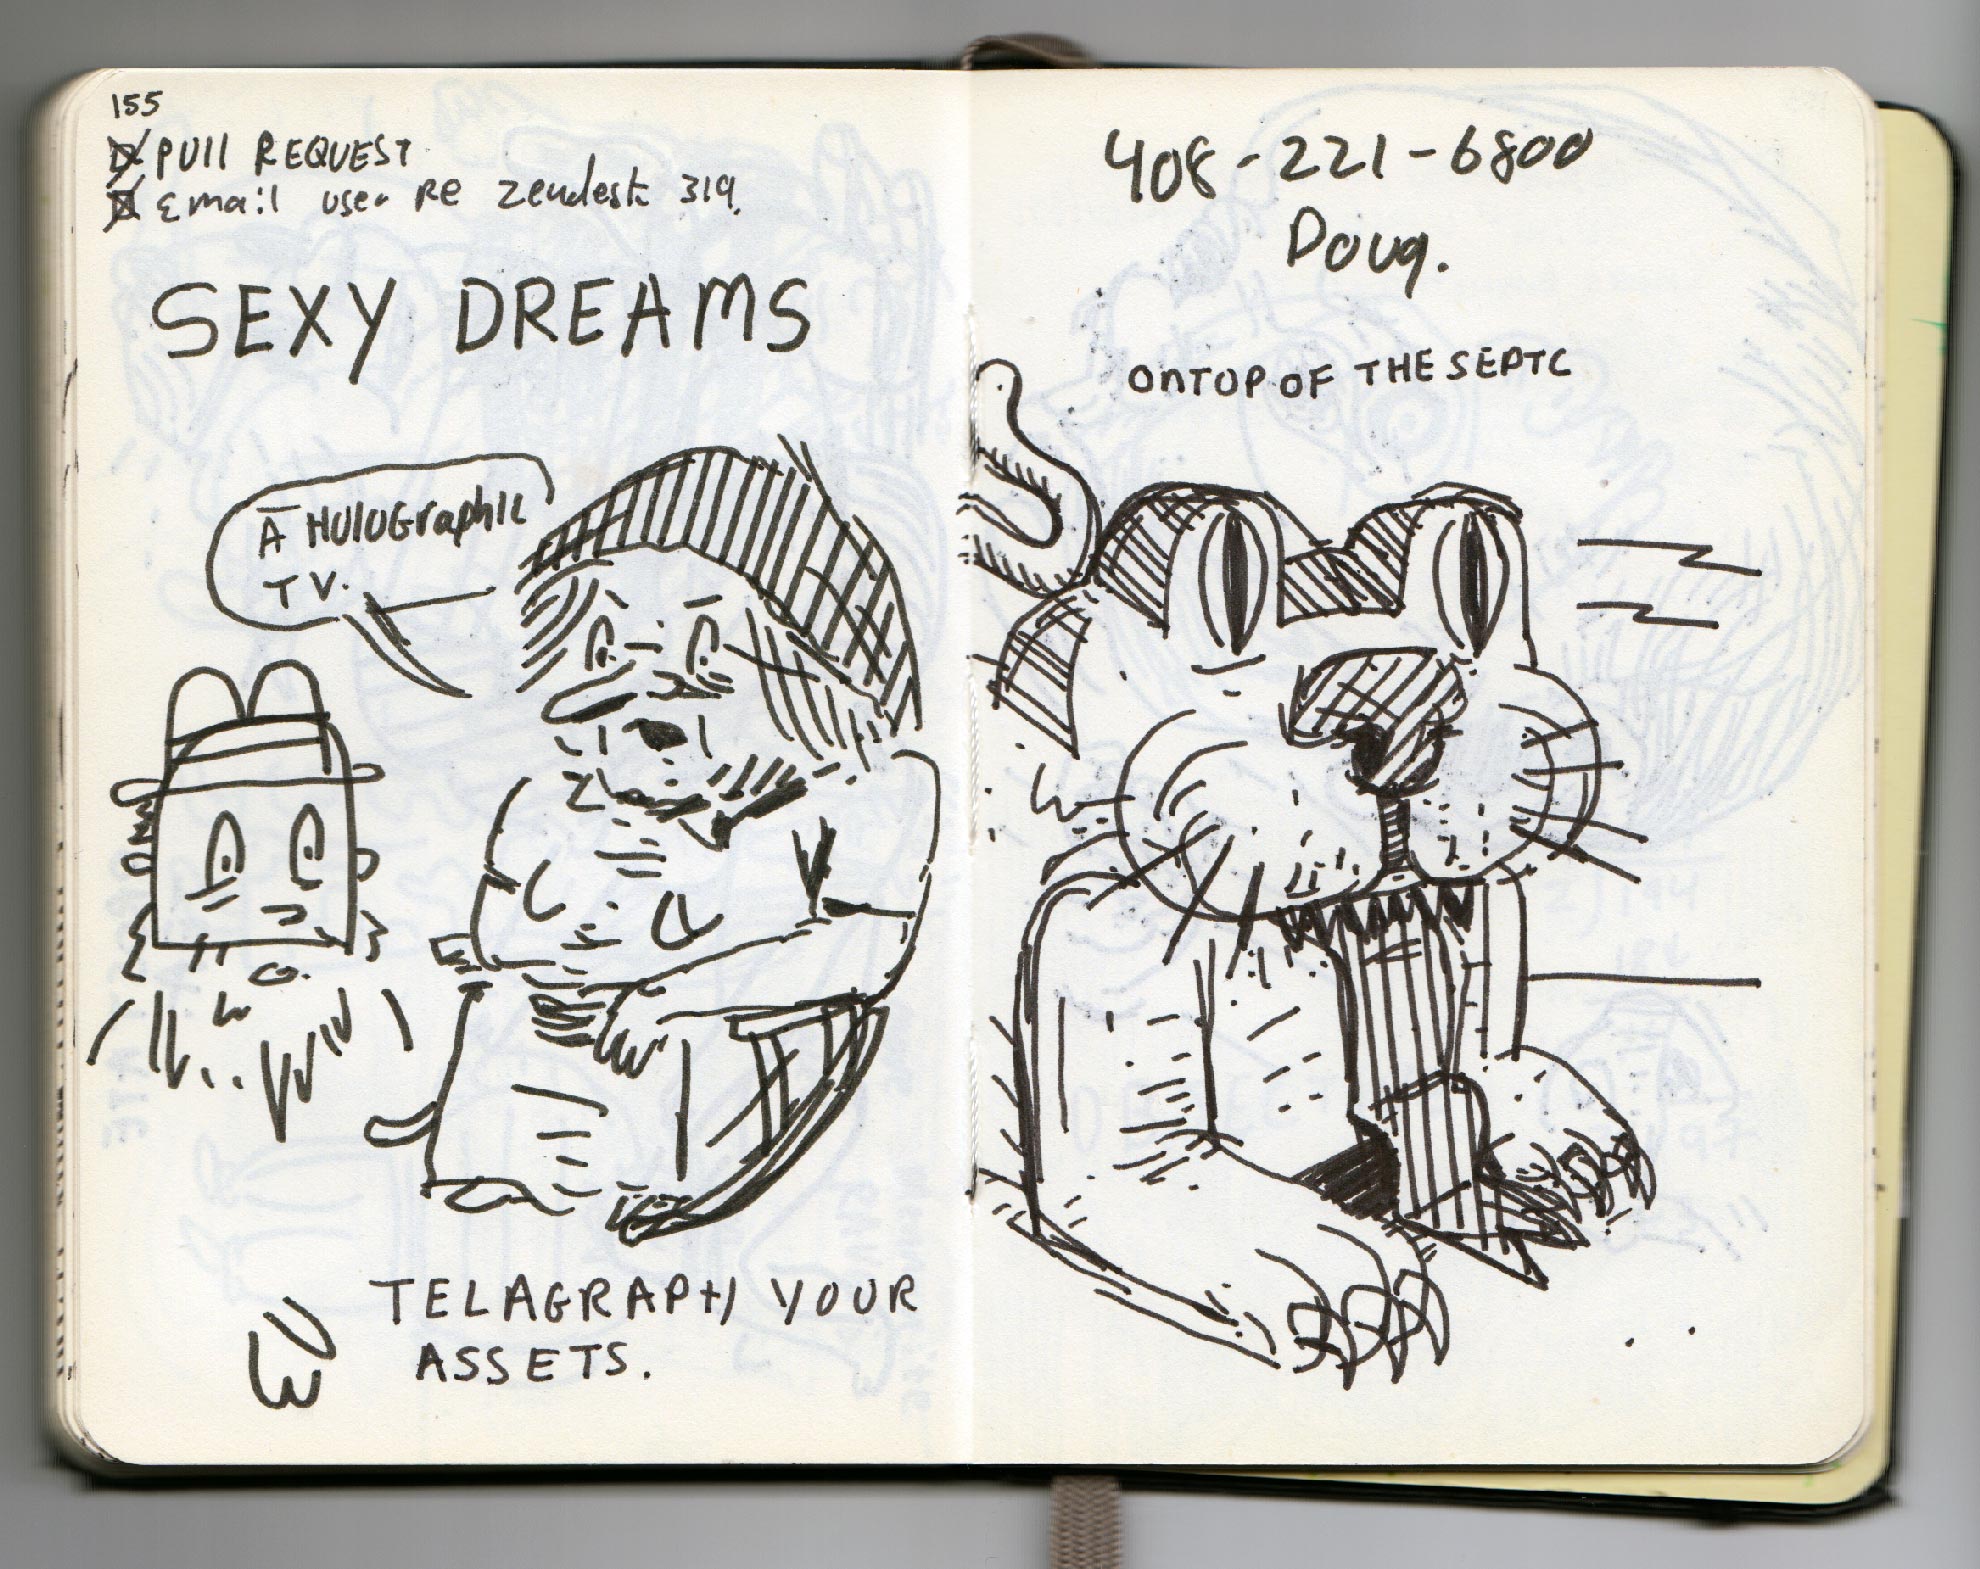 155
PUll REQUEST
Email user RE Zendesk 319.
SEXY DREAMS
A HOLOGraphic
TV.
TELAGRAPH YOUR
ASSETS.
408-221-6800
Doug.
ONTOP OF THE SEPTC